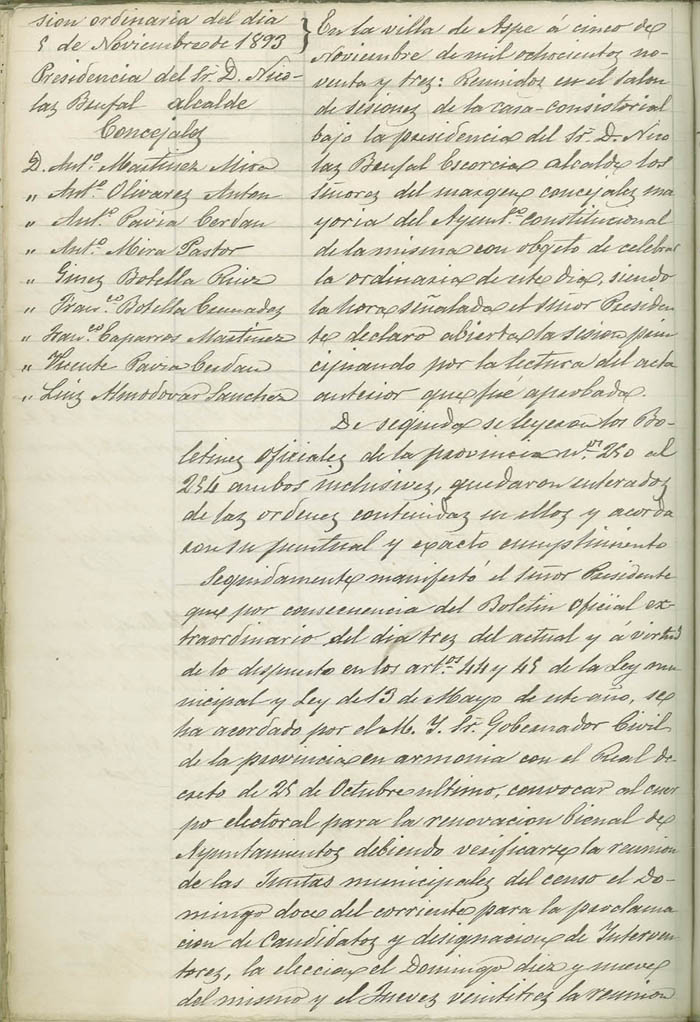 sion ordinaria del dia
5 de Noviembre de 1893
Presidencia del Sr. D. Nico-
laz Beufal alcalde
Concejalez
D. Ant.º Martinez Mira
„ Ant.º Olivarez Anton
„ Ant.º Pavia Cerdan
„ Ant.º Mira Pastor
„ Ginez Botella Ruiz
„ Fran.co Botella Cremadez
„ Fran.co Caparros Martinez
„ Vicente Pavia Cerdan
„ Luiz Almodovar Sanchez
En la villa de Aspe á cinco de
Noviembre de mil ochocientoz no-
venta y trez: Reunidoz en el salon
de sesionez de la casa-consistorial
bajo la presidencia del Sr. D. Nico
laz Beufal Escorcia alcalde los
señorez del margen concejalez ma
yoria del Ayunt.º constitucional
de la misma con obgeto de celebrar
la ordinaria de este dia, siendo
la hora señalada el señor Presiden
te declaro abierta la sesion prin
cipiando por la lectura del acta
anterior que fué aprobada.
De seguida se leyeron los Bo-
letinez oficialez de la provincia nos. 250 al
254 ambos inclusivez, quedaron enteradoz
de laz ordenez contenidaz en elloz y acorda
ron su puntual y exacto cumplimiento
Seguidamente manifestó el señor Presidente
que por consecuencia del Boletin Oficial ex-
traordinario del dia trez del actual y á virtud
de lo dispuesto en los art.os 44 y 45 de la Ley mu
nicipal y Ley de 13 de Mayo de este año, se
ha acordado por el M. Y. Sr. Gobernador Civil
de la provincia en armonia con el Real de-
creto de 25 de Octubre ultimo, convocar al cuer
po electoral para la renovacion bienal de
Ayuntamientoz debiendo verificarse la reunion
de las Juntas municipalez del censo el Do-
mingo doce del corriente para la proclama
cion de Candidatoz y designacion de Interven
torez, la eleccion el Domingo diez y nueve
del mismo y el Juevez veintitrez la reunion